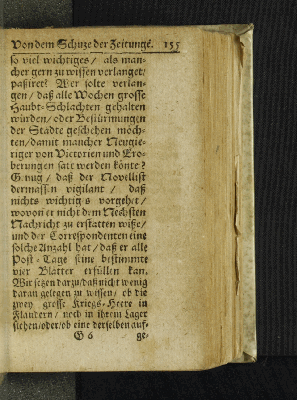 Von dem Schuze der Zeitungē. 155
so viel wichtiges / als man-
cher gern zu wissen verlanget/
paßiret? Wer solte verlan-
gen / daß alle Wochen grosse
Haubt-Schlachten gehalten
würden / oder Bestürmungen
der Städte geschehen möch-
ten / damit mancher Neugie-
riger von Victorien und Ero-
berungen satt werden könte?
Genug / daß der Novellist
dermassen vigilant / daß
nichts wichtiges vorgehet /
wovon er nicht dem Nechsten
Nachricht zu erstatten wisse /
und der Correspondenten eine
solche Anzahl hat / daß er alle
Post-Tage seine bestimmte
vier Blätter erfüllen kan.
Wir setzen darzu / daß nicht wenig
daran gelegen zu wissen / ob die
zwey grosse Kriegs-Heere in
Flandern / noch in ihrem Lager
stehen / oder / ob eine derselben auf-
G 6 ge-